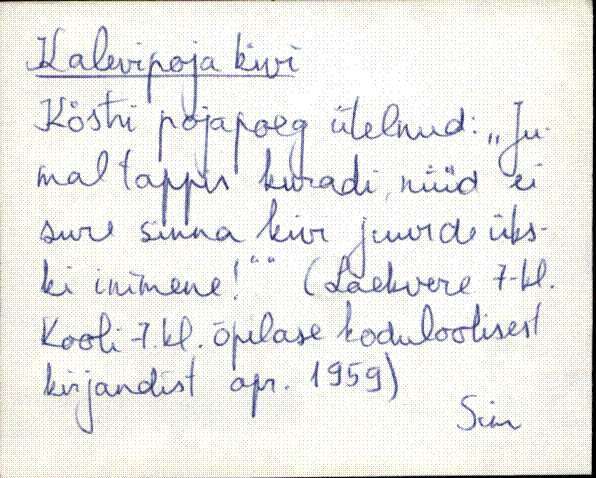 Kalevipoja kivi
Köstri pojapoeg ütelnud: „Ju-
mal tappis kuradi, nüüd ei
sure sinna kivi juurde üks-
ki inimene!“ “ (Laekvere 7-kl.
Kooli 7. kl. õpilase koduloolisest
kirjandist apr. 1959)